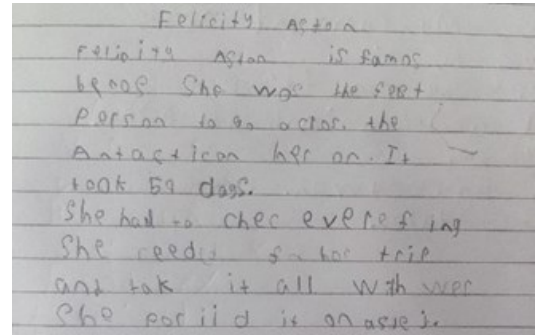 Felicity Aston
Felicity Aston is famos
She was the
Person to go acros. the
Antactican her on. It
took 59 days.
She had to chec everefing
She needs for her trip
and tak it all with
She it on